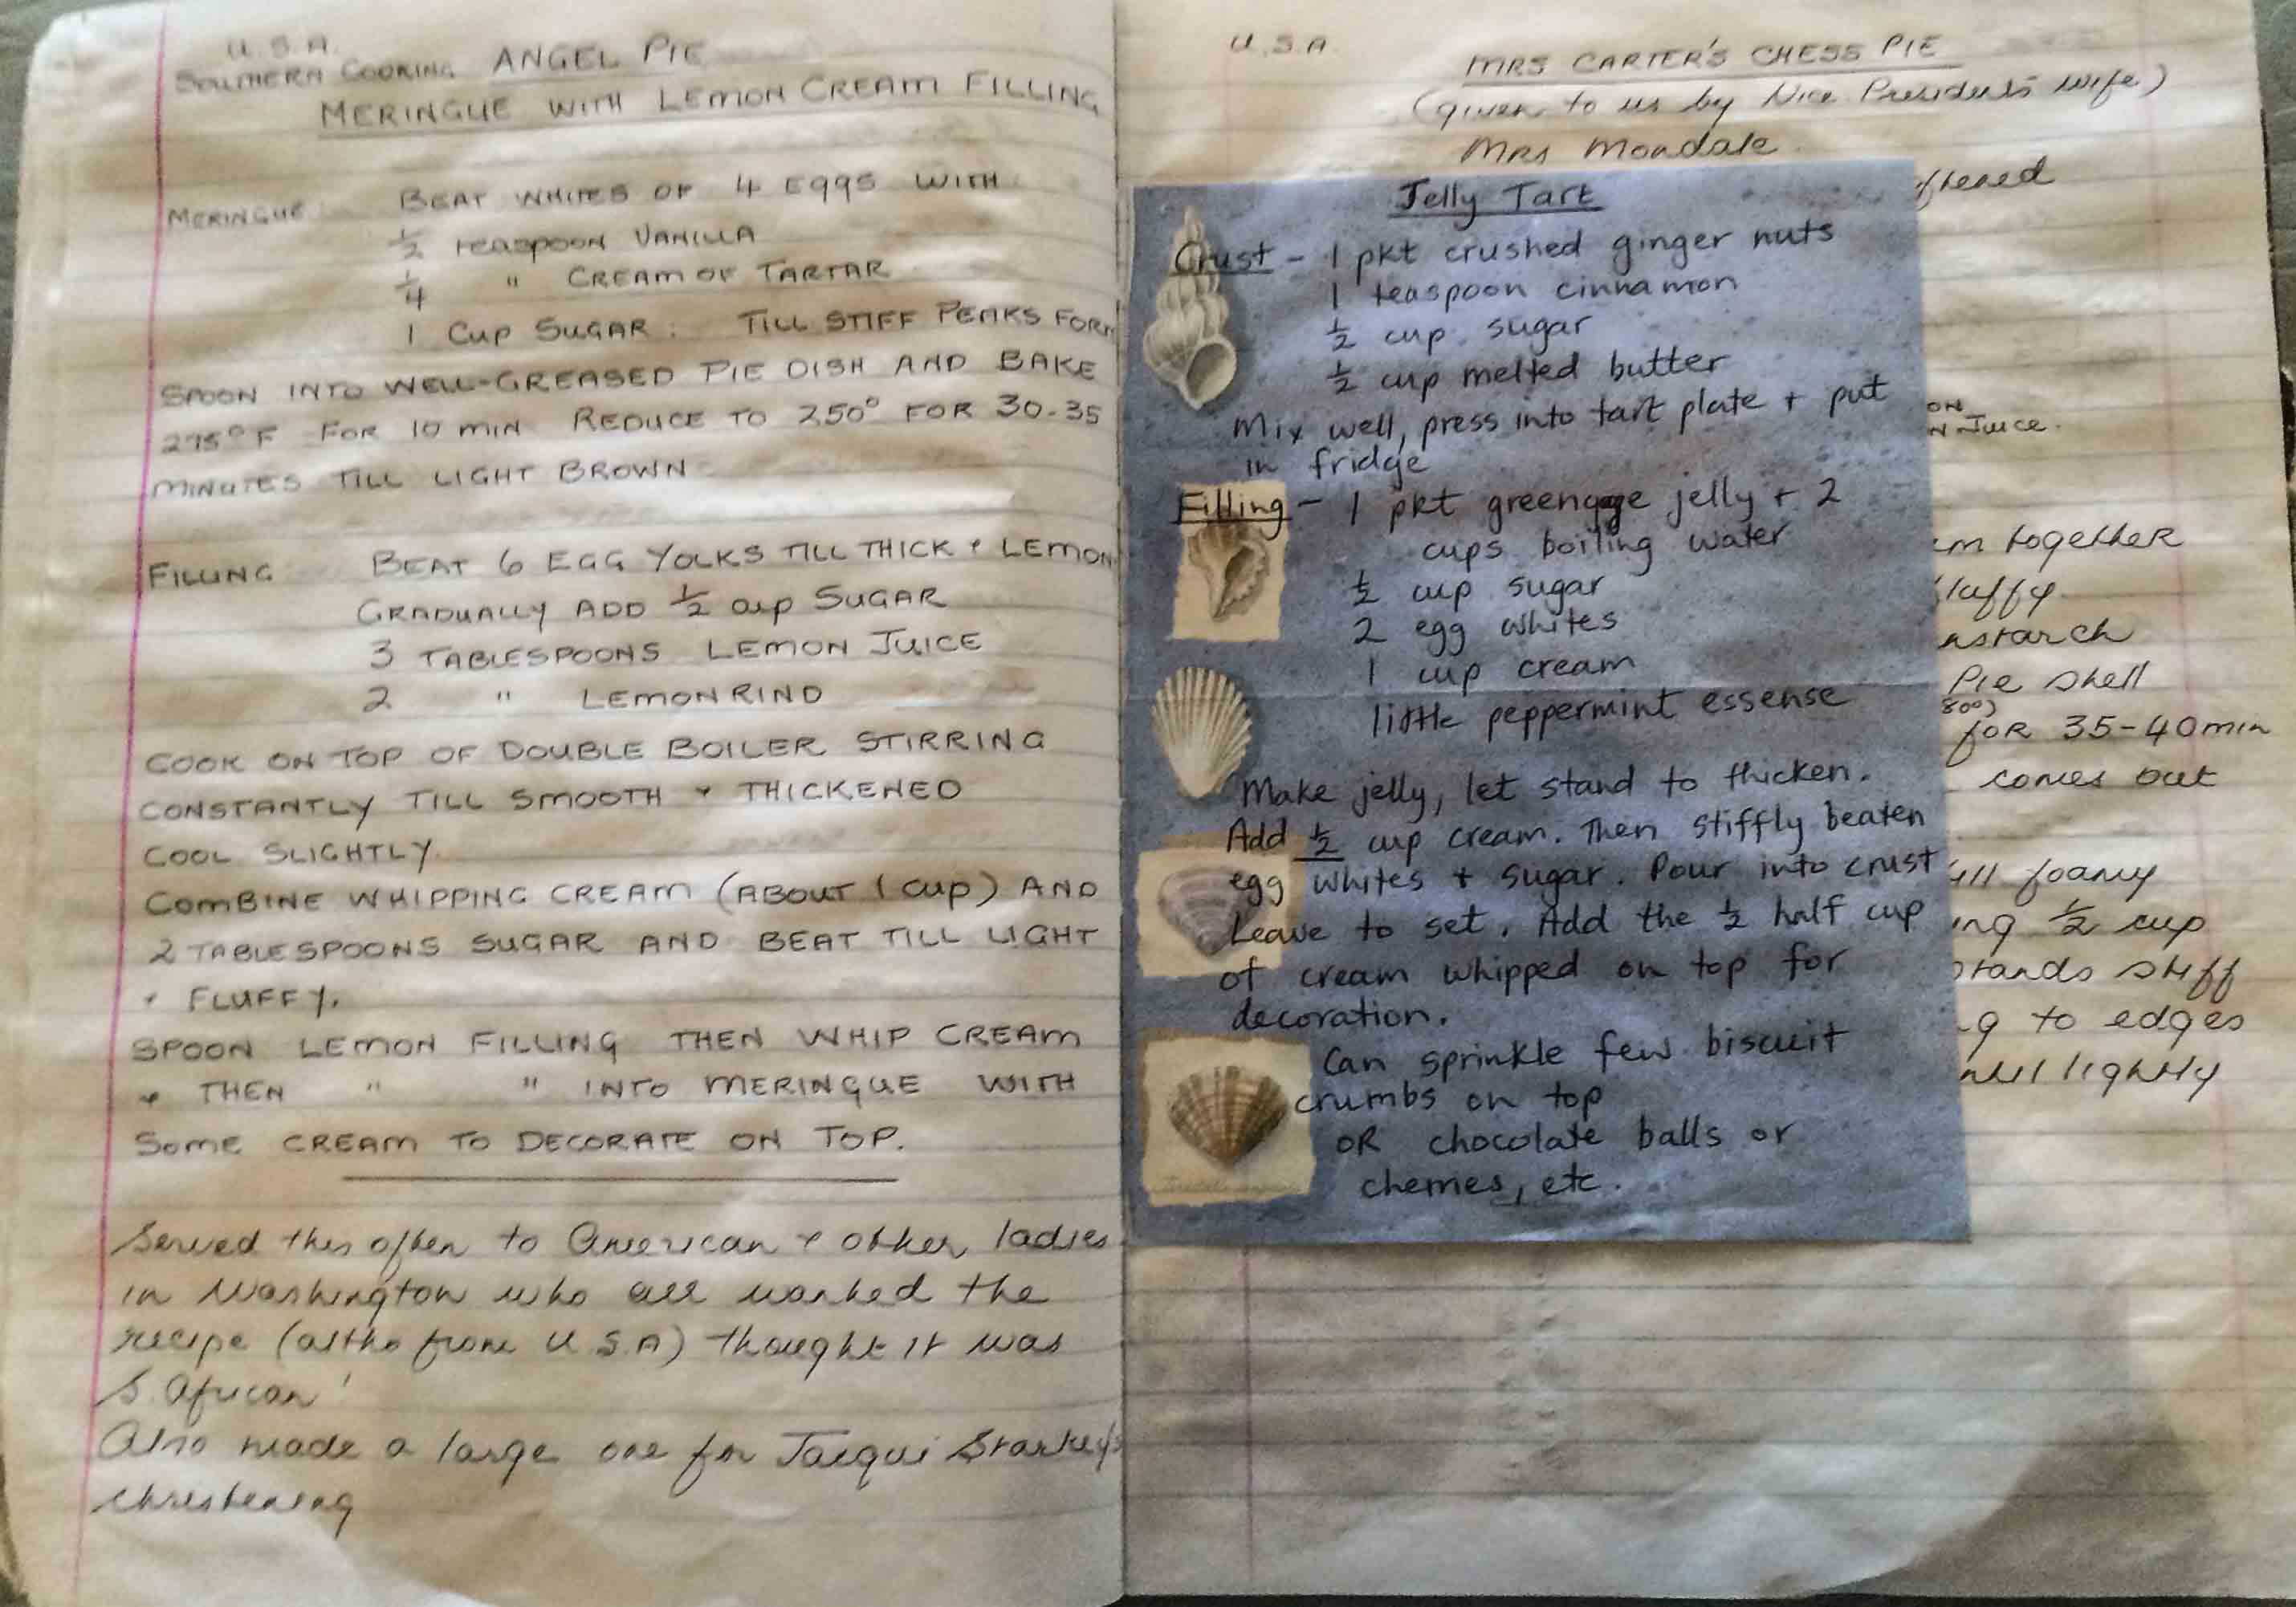 U.S.A.
SOUTHERN COOKING ANGEL PIE
MERINGUE WITH LEMON CREAM FILLING
MERINGUE: BEAT WHITES OF 4 EGGS WITH
½ TEASPOON VANILLA
¼ " CREAM OF TARTAR
1 CUP SUGAR: TILL STIFF PEAKS FORM
SPOON INTO WELL-GREASED PIE DISH AND BAKE
275°F FOR 10 MIN REDUCE TO 250° FOR 30-35
MINUTES TILL LIGHT BROWN
FILLING BEAT 6 EGG YOLKS TILL THICK + LEMON
GRADUALLY ADD ½ cup SUGAR
3 TABLESPOONS LEMON JUICE
2 " LEMON RIND
COOK ON TOP OF DOUBLE BOILER STIRRING
CONSTANTLY TILL SMOOTH + THICKENED
COOL SLIGHTLY.
COMBINE WHIPPING CREAM (ABOUT 1 cup) AND
2 TABLESPOONS SUGAR AND BEAT TILL LIGHT
+ FLUFFY.
SPOON LEMON FILLING THEN WHIP CREAM
+ THEN " " INTO MERINGUE WITH
SOME CREAM TO DECORATE ON TOP.
Served this often to American + other ladies
in Washington who all wanted the
recipe (altho from U.S.A) thought it was
S. African!
Also made a large one for Jacqui Starkey's
christening
U.S.A.
MRS CARTER'S CHESS PIE
(given to us by Vice President's wife)
Mrs Mondale
Jelly Tart
Crust - 1 pkt crushed ginger nuts
1 teaspoon cinnamon
½ cup sugar
½ cup melted butter
Mix well, press into tart plate + put
in fridge
Filling - 1 pkt greengage jelly + 2
cups boiling water
½ cup sugar
2 egg whites
1 cup cream
little peppermint essense
Make jelly, let stand to thicken.
Add ½ cup cream. Then stiffly beaten
egg whites + sugar. Pour into crust
Leave to set. Add the ½ half cup
of cream whipped on top for
decoration.
Can sprinkle few biscuit
crumbs on top
OR chocolate balls or
cherries, etc.
ftened
ON
N JUICE.
m together
luffy
nstarch
Pie shell
80°)
for 35-40 min
comes out
ill foamy
ing ½ cup
stands stiff
g to edges
ntil lightly